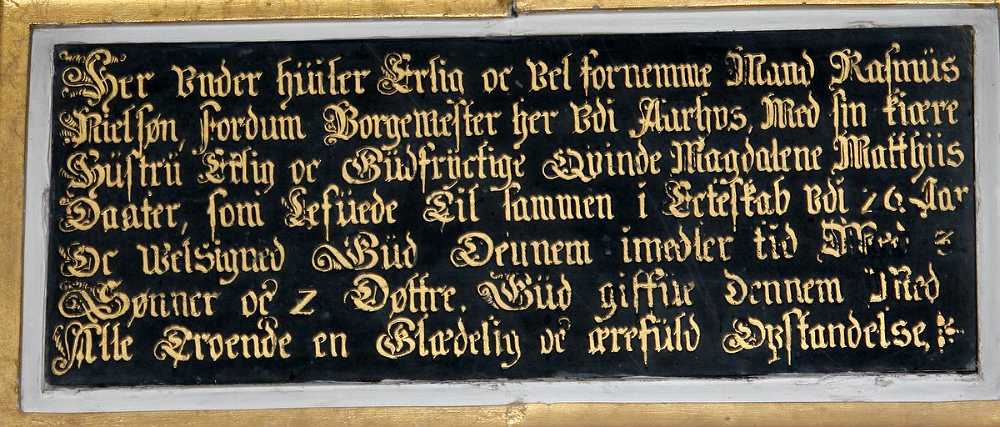 Her vnder hüiler Erlig oc vel fornemme Mand Rasmüs
Nielsøn, fordum Borgemester her vdi Aarhvs, Med sin kiære
Hüstrü Erlig oc Güdfryctige Qvinde Magdalene Matthiis
Daater, som lefüede Til sammen i Ecteskab vdi 26 Aar
Oc welsigned Güd Dennem imedler tid Med 3
Sønner oc 2 Døttre. Güd giffüe dennem Med
Alle Troende en Glædelig oc ærefüld Opstandelse,